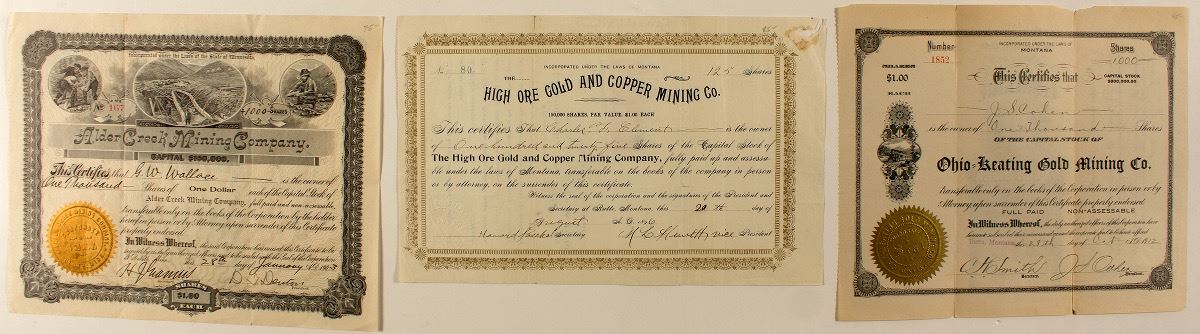 Incorporated under the Laws of the State of Minnesota.
No 167
1000 SHARES
Alder Creek Mining Company.
CAPITAL $150,000.
This Certifies that G.W. Wallace is the owner of
One Thousand Shares of One Dollar each of the Capital Stock of
Alder Creek Mining Company, full paid and non assessable,
transferable only on the books of the Corporation by the holder
hereof in person or by Attorney upon surrender of this Certificate
properly endorsed.
In Witness Whereof, the said Corporation has caused this Certificate to be
signed by its duly authorized officers and to be sealed with the Seal of the Corporation
28th day of January
SHARES
$1.00
EACH
80
INCORPORATED UNDER THE LAWS OF MONTANA
125 Shares
THE
HIGH ORE GOLD AND COPPER MINING CO.
150,000 SHARES, PAR VALUE, $1.00 EACH
This certifies That Charles F. Clement is the owner
of One hundred and twenty five Shares of the Capital Stock of
The High Ore Gold and Copper Mining Company, fully paid up and assessa-
ble under the laws of Montana, transferable on the books of the company in person
or by attorney, on the surrender of this certificate.
Witness the seal of the corporation and the signatures of the President and
Secretary at Butte, Montana, this 20th day of
August A. D. 1906
Secretary Vice President
Number
1852
INCORPORATED UNDER THE LAWS OF
MONTANA
Shares
1000
SHARES
$1.00
EACH
This Certifies that
CAPITAL STOCK
$800,000.00
J.S. Cohen
is the owner of One Thousand Shares
OF THE CAPITAL STOCK OF
Ohio-Keating Gold Mining Co.
transferable only on the books of the Corporation in person or by
Attorney upon surrender of this Certificate properly endorsed.
FULL PAID NON-ASSESSABLE
In Witness Whereof, the duly authorized officers of this Corporation have
Butte, Montana 28th day of Oct A.D. 1912
C.H. Smith